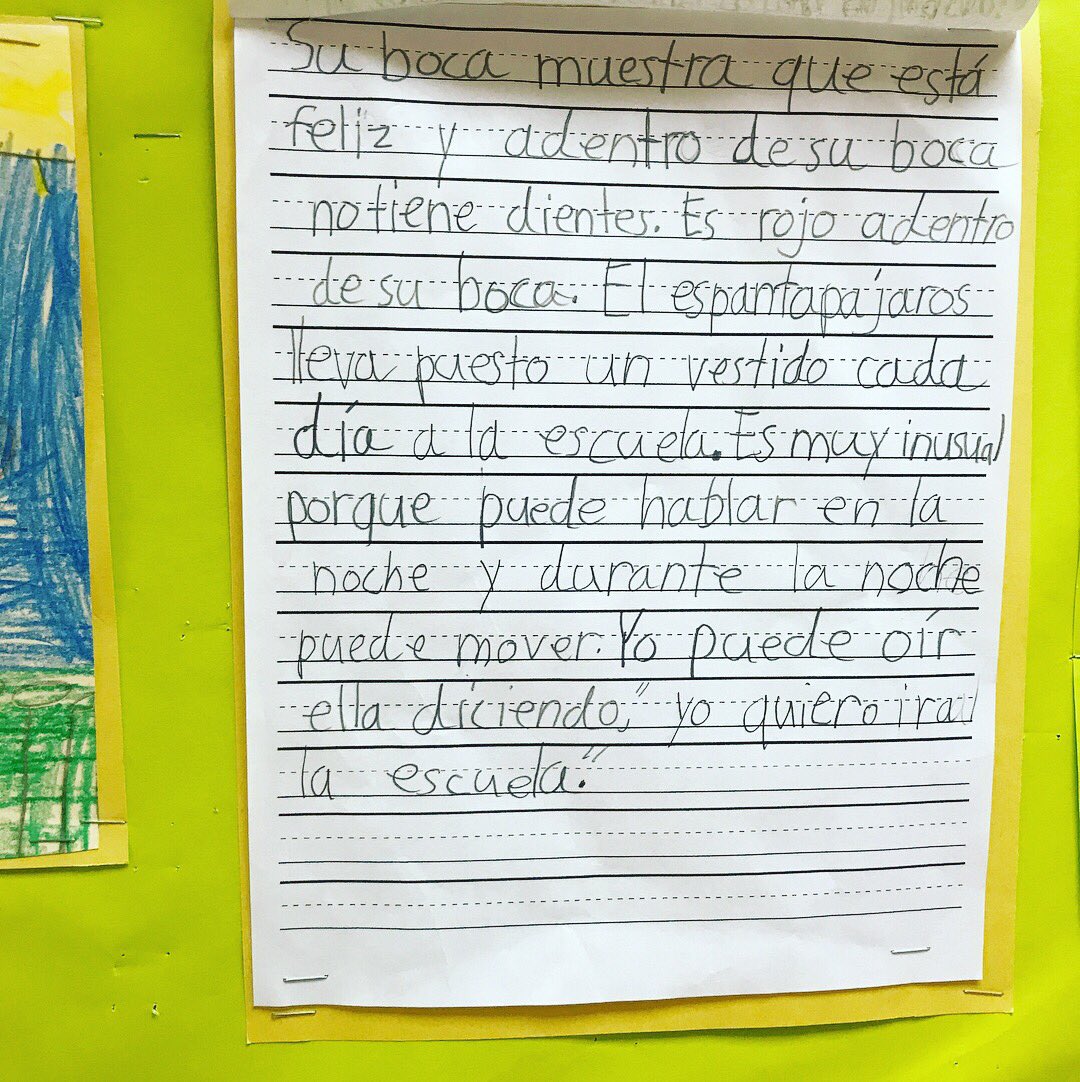 Su boca muestra que está
feliz y adentro de su boca
no tiene dientes. Es rojo adentro
de su boca. El espantapájaros
lleva puesto un vestido cada
día a la escuela. Es muy inusual
porque puede hablar en la
noche y durante la noche
puede mover. Yo puede oír
ella diciendo, "yo quiero ir a
la escuela."